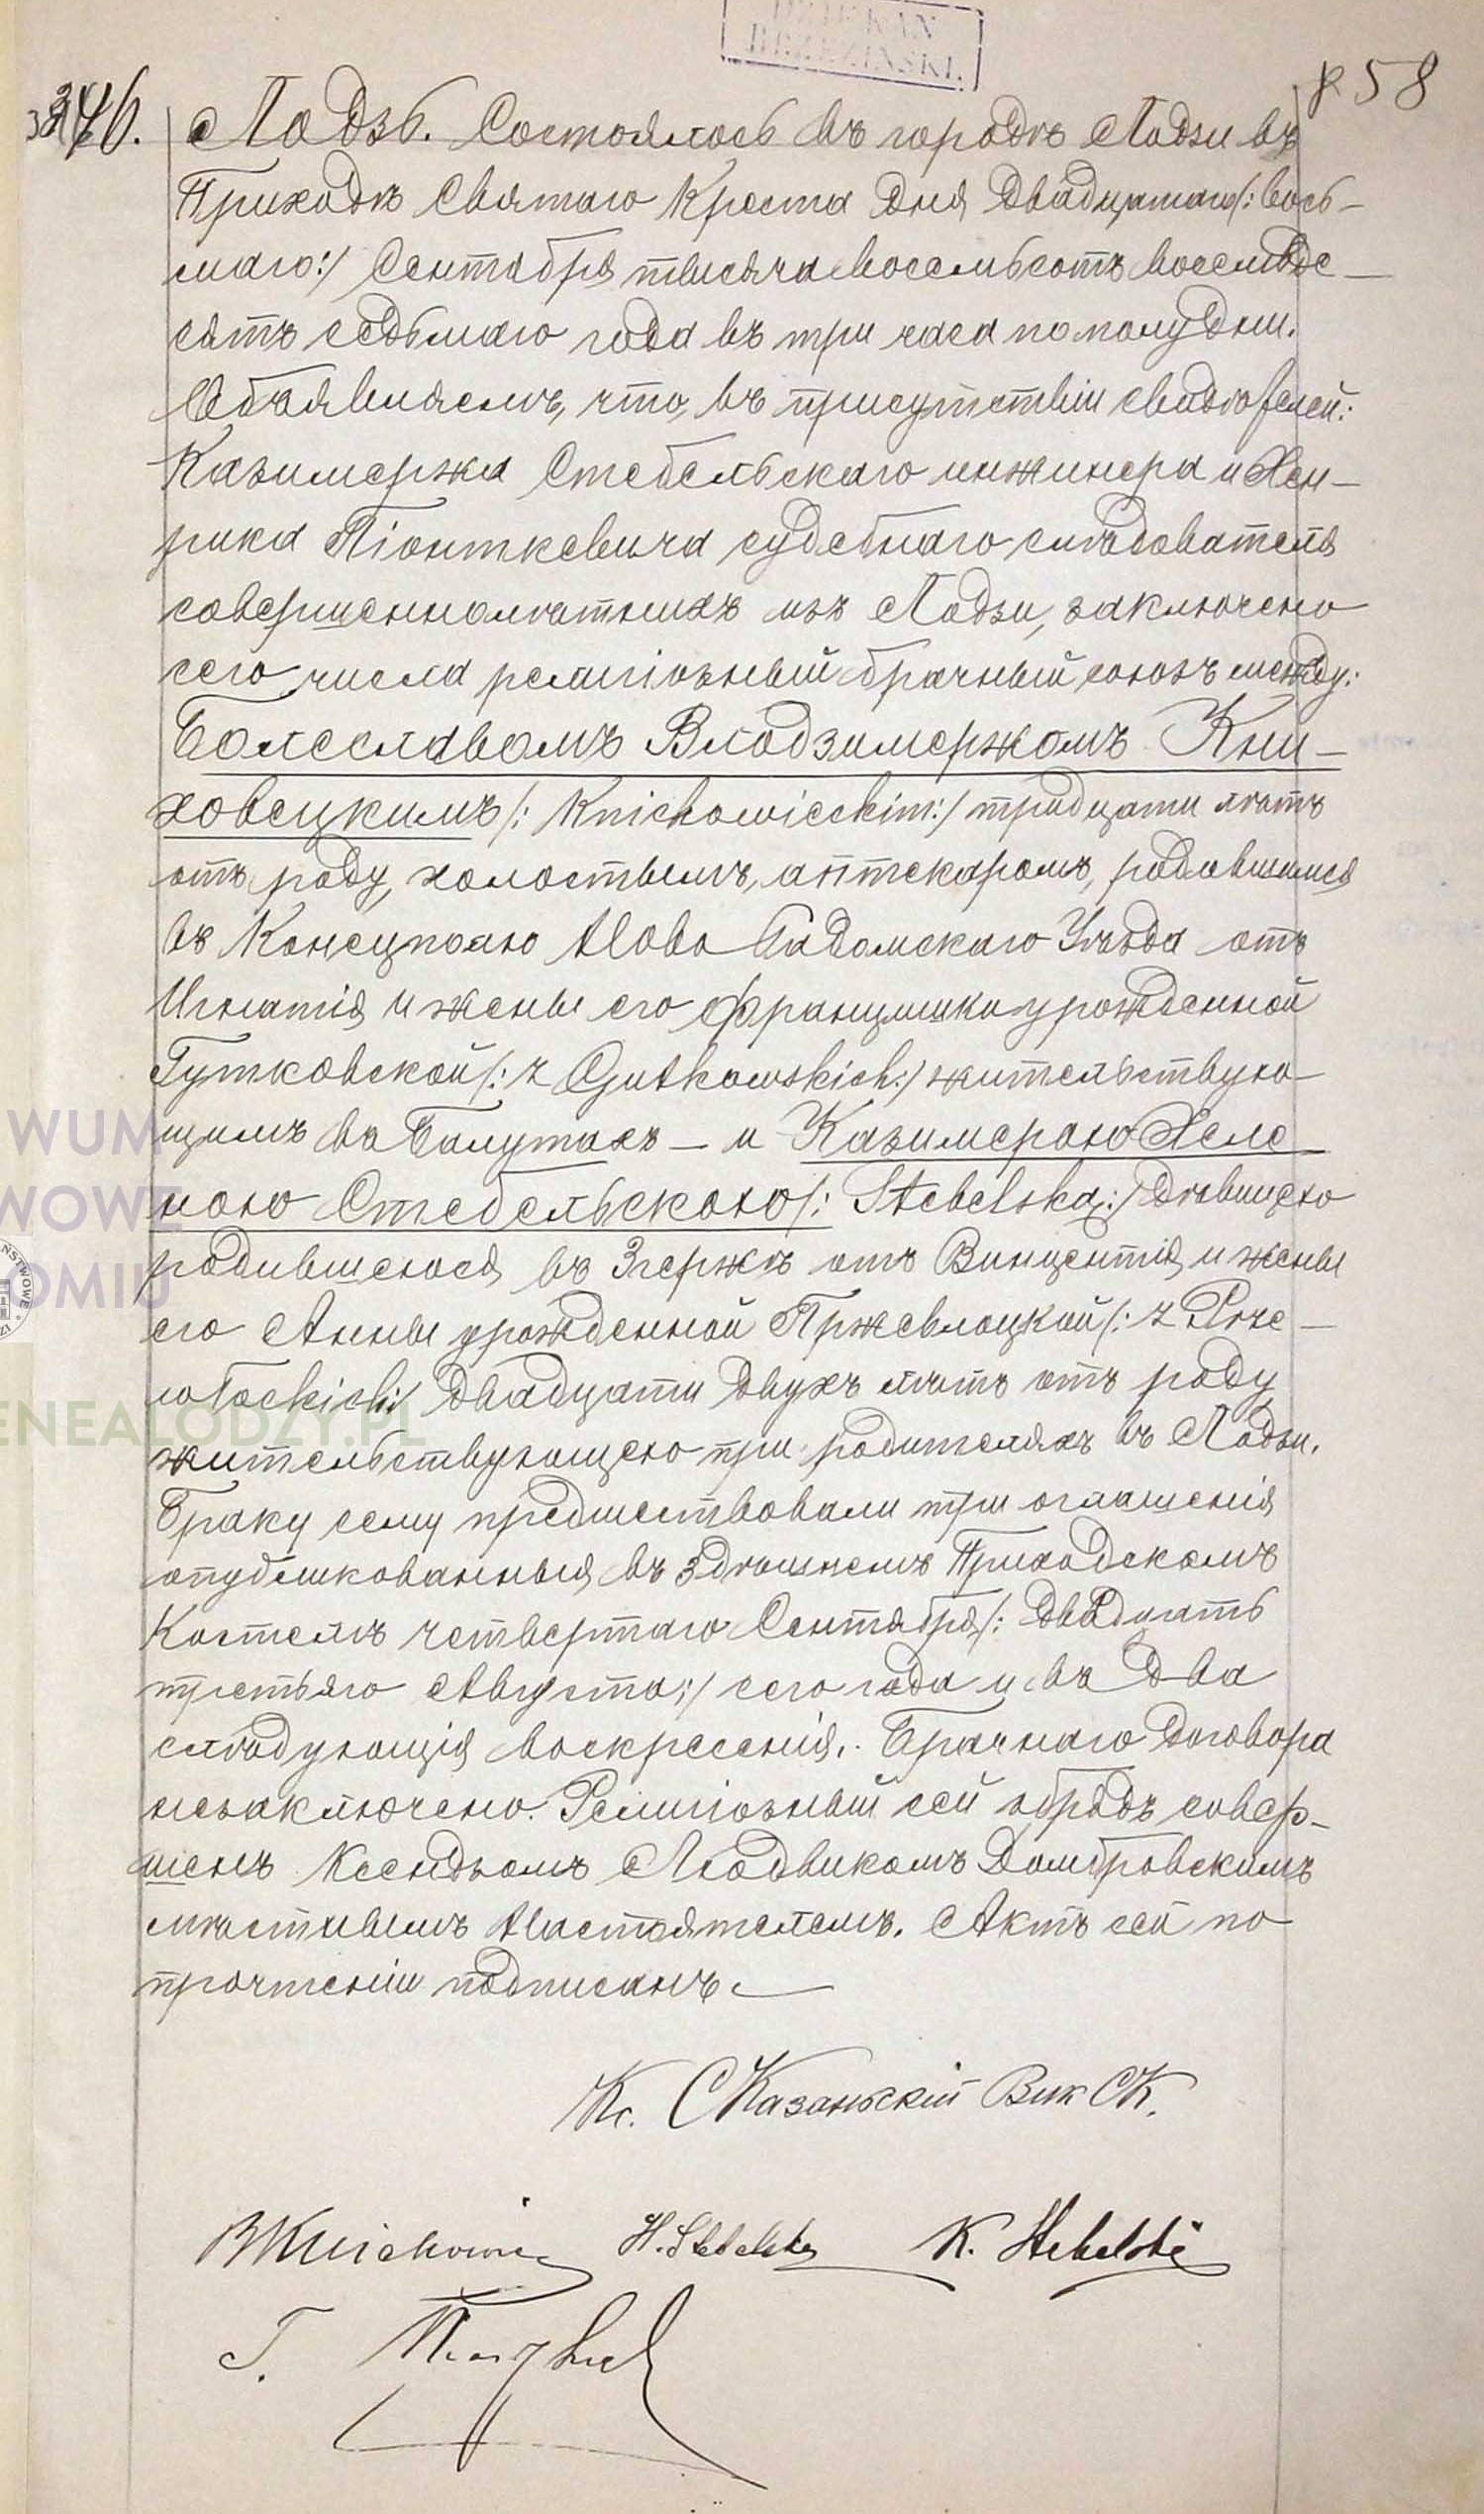 DZIEKAN
BRZEZIŃSKI.
858
346. Лодзь. Состоялось въ городѣ Лодзи въ
Приходѣ Святаго Креста дня двадцатаго /: вось-
маго :/ Сентября тысяча восемьсотъ восемьде-
сятъ седьмаго года въ три часа пополудни.
Объявляемъ, что, въ присутствіи свидѣтелей:
Казимержа Стебельскаго инжинера и Хен-
рика Піонткевича судебнаго слѣдователя
совершеннолѣтнихъ изъ Лодзи, заключено
сего числа религіозный брачный союзъ между:
Болеславомъ Влодзимержомъ Кни-
ховецкимъ /: Knichowieckim :/ тридцати лѣтъ
отъ роду, холостымъ, аптекаромъ, родившимся
въ Конецполю Ново Радомскаго Уѣзда отъ
Игнатія и жены его Францишки урожденной
Гутковской /: z Gutkowskich :/ жительствую-
щимъ въ Балутахъ — и Казимерою Хеле-
ною Стебельскою /: Stebelska :/ дѣвицею
родившеюся въ Згержѣ отъ Винцентія и жены
его Анны урожденной Пржевлоцкой /: z Prze-
włockich :/ двадцати двухъ лѣтъ отъ роду
жительствующею при родителяхъ въ Лодзи.
Браку сему предшествовали три оглашенія
опубликованныя въ здѣшнемъ Приходскомъ
Костелѣ четвертаго Сентября /: двадцать
третьяго Августа :/ сего года и въ два
слѣдующія воскресенія. Брачнаго договора
незаключено. Религіозный сей обрядъ совер-
шенъ Ксендзомъ Людвикомъ Домбровскимъ
мѣстнымъ Настоятелемъ. Актъ сей по
прочтеніи подписанъ.
Кс. Казанскій Вик СК.
H. Stebelska K. Stebelski
Г.
WUM
WOWE
OMIU
GENEALODZY.PL